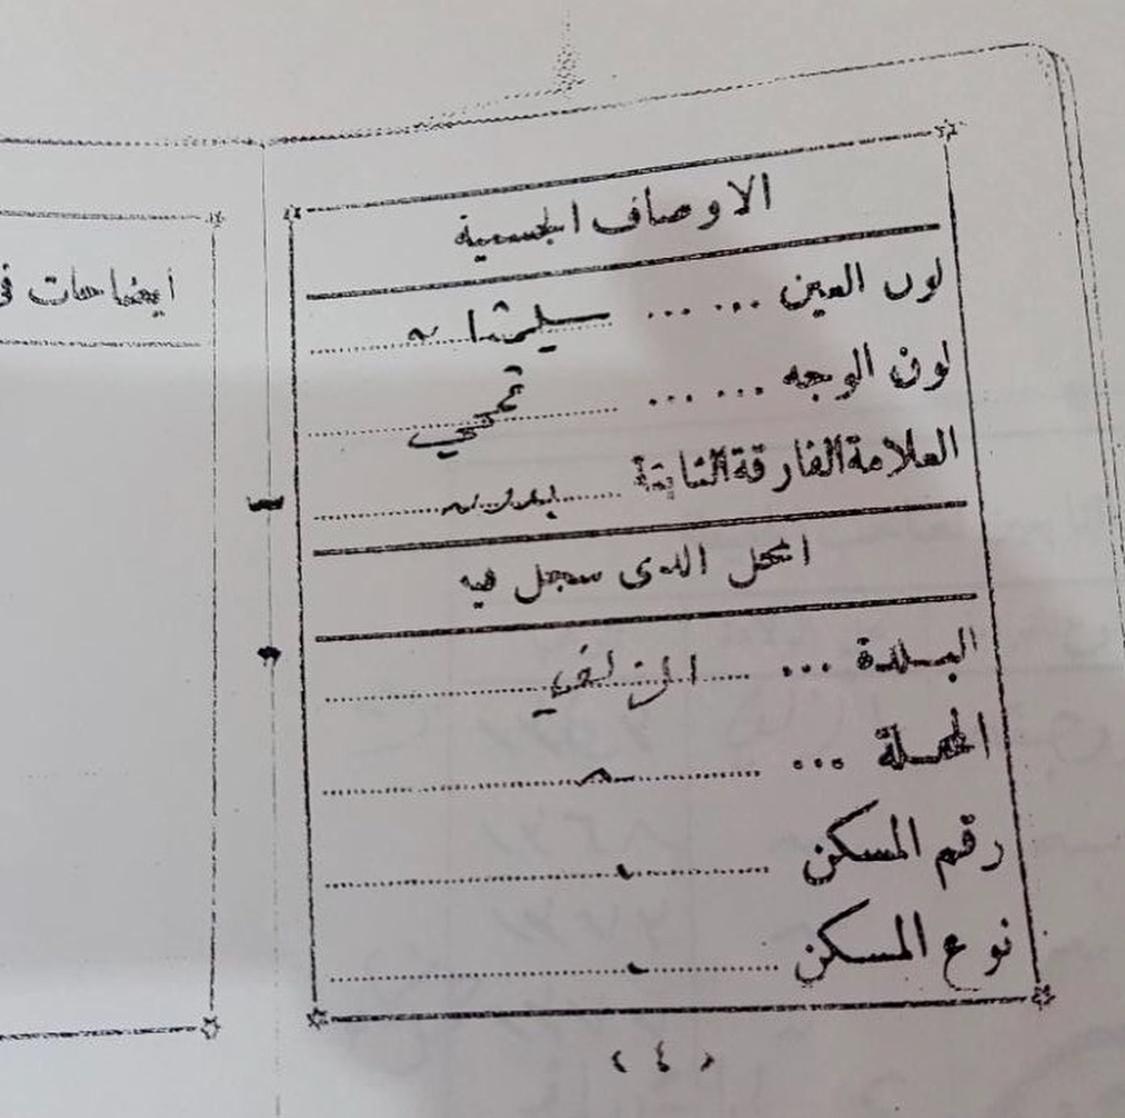 الاوصاف الجسمية
لون العين ... ...
لون الوجه ... ... قمحي
العلامة الفارقة الثابتة بدون
المحل الذى سجل فيه
البلدة ... الزلفي
المحلة ...
رقم المسكن
نوع المسكن
(٤)
ايضاحات